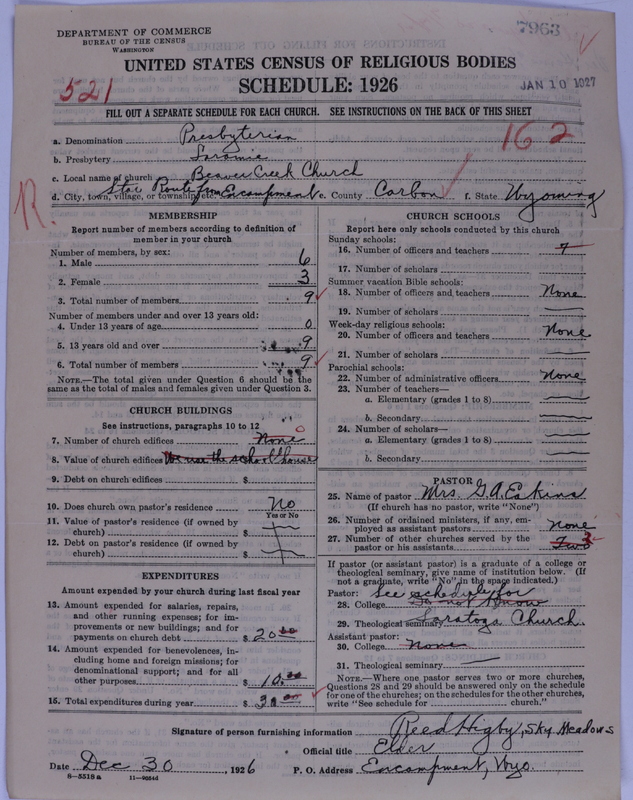 DEPARTMENT OF COMMERCE
BUREAU OF THE CENSUS
WASHINGTON
7963
UNITED STATES CENSUS OF RELIGIOUS BODIES
SCHEDULE: 1926
521
JAN 10 1927
FILL OUT A SEPARATE SCHEDULE FOR EACH CHURCH. SEE INSTRUCTIONS ON THE BACK OF THIS SHEET
162
a. Denomination Presbyterian
b. Presbytery Laramie
c. Local name of church Beaver Creek Church
d. City, town, village, or township, etc. Star Route from Encampment e. County Carbon f. State Wyoming
R.
MEMBERSHIP
Report number of members according to definition of
member in your church
Number of members, by sex:
1. Male 6
2. Female 3
3. Total number of members 9
Number of members under and over 13 years old:
4. Under 13 years of age 0
5. 13 years old and over 9
6. Total number of members 9
NOTE.—The total given under Question 6 should be the
same as the total of males and females given under Question 3.
CHURCH BUILDINGS
See instructions, paragraphs 10 to 12
7. Number of church edifices None 0
8. Value of church edifices We use the school house
9. Debt on church edifices $
10. Does church own pastor's residence No
Yes or No
11. Value of pastor's residence (if owned by
church) $
12. Debt on pastor's residence (if owned by
church) $
EXPENDITURES
Amount expended by your church during last fiscal year
13. Amount expended for salaries, repairs,
and other running expenses; for im-
provements or new buildings; and for
payments on church debt $ 20.00
14. Amount expended for benevolences, in-
cluding home and foreign missions; for
denominational support; and for all
other purposes $ 10.00
15. Total expenditures during year $ 30.00
CHURCH SCHOOLS
Report here only schools conducted by this church
Sunday schools:
16. Number of officers and teachers
17. Number of scholars
Summer vacation Bible schools:
18. Number of officers and teachers None
19. Number of scholars
Week-day religious schools:
20. Number of officers and teachers None
21. Number of scholars
Parochial schools:
22. Number of administrative officers None
23. Number of teachers—
a. Elementary (grades 1 to 8)
b. Secondary
24. Number of scholars—
a. Elementary (grades 1 to 8)
b. Secondary
PASTOR
25. Name of pastor Mrs. G. A. Eakins
(If church has no pastor, write "None")
26. Number of ordained ministers, if any, em-
ployed as assistant pastors None
27. Number of other churches served by the
pastor or his assistants Two
If pastor (or assistant pastor) is a graduate of a college or
theological seminary, give name of institution below. (If
not a graduate, write "No" in the space indicated.)
Pastor: See schedule for
28. College Do not know
29. Theological seminary Saratoga Church.
Assistant pastor:
30. College None
31. Theological seminary
NOTE.—Where one pastor serves two or more churches,
Questions 28 and 29 should be answered only on the schedule
for one of the churches; on the schedules for the other churches,
write "See schedule for church."
Signature of person furnishing information Reed Higby, Sky Meadows
Official title Elder
Date Dec 30, 1926 P. O. Address Encampment, Wyo.
8—5518 a 11—9554d